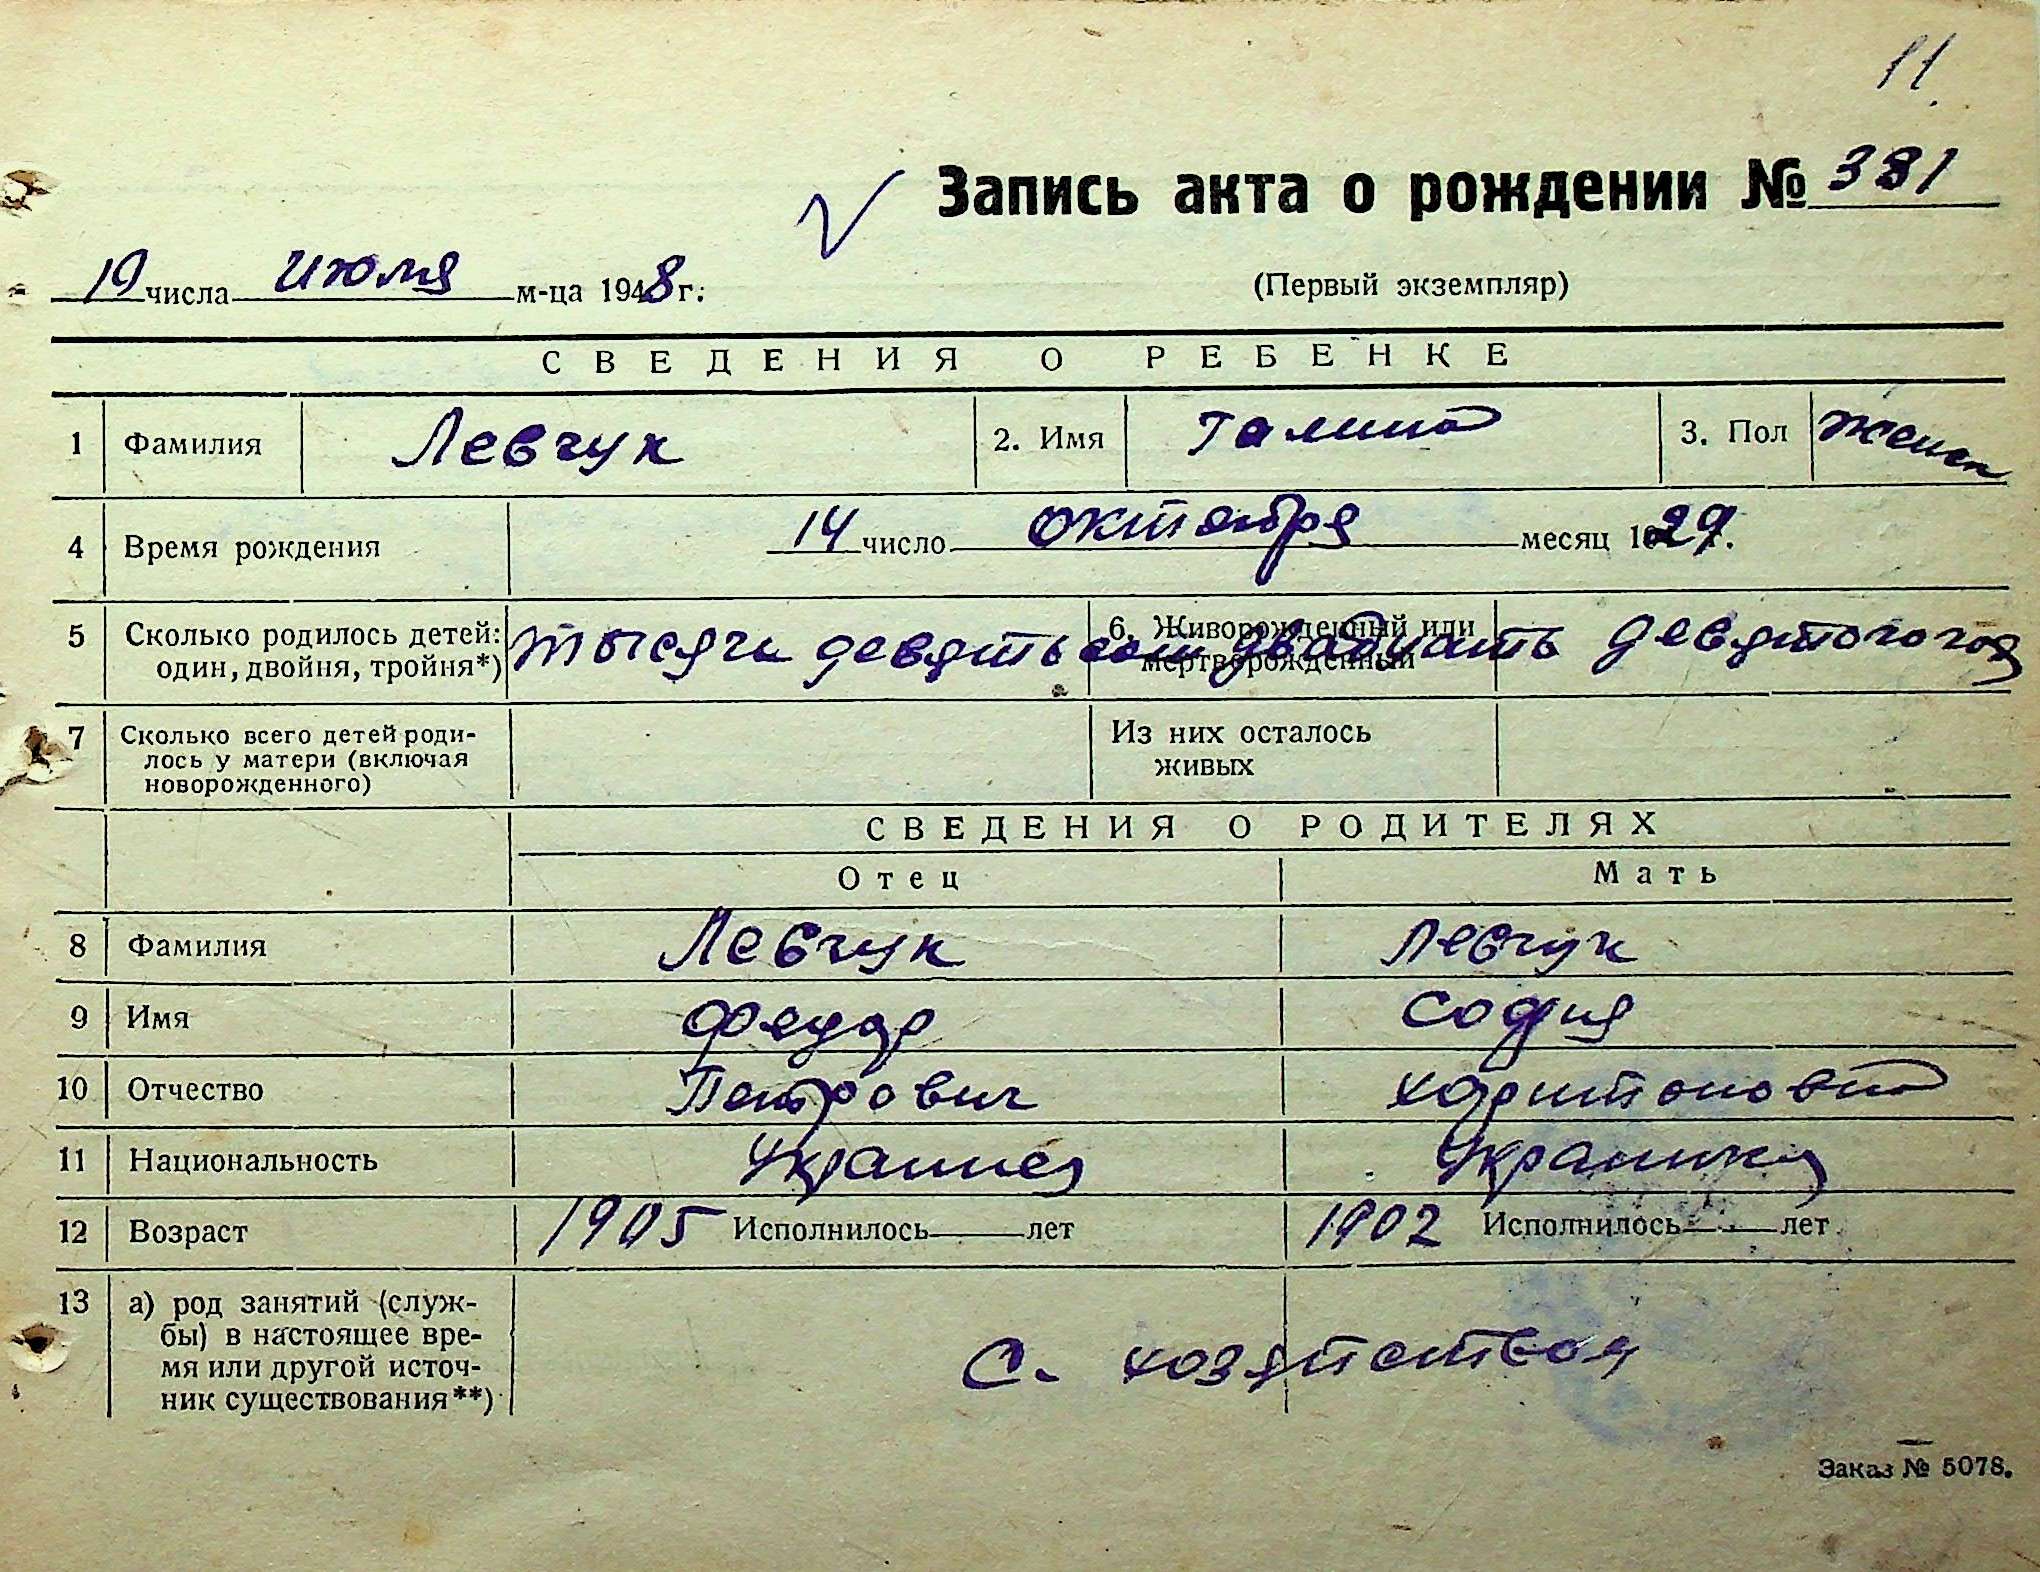 11.
Запись акта о рождении № 381
19 числа июля м-ца 1948 г.
(Первый экземпляр)
СВЕДЕНИЯ О РЕБЕНКЕ
1 Фамилия Левчук 2. Имя Галина 3. Пол женск
4 Время рождения 14 число октября месяц 1929.
5 Сколько родилось детей: один, двойня, тройня*) тысяча девятьсот двадцать девятого года
6. Живорожденный или мертворожденный
7 Сколько всего детей роди-
лось у матери (включая
новорожденного)
Из них осталось
живых
СВЕДЕНИЯ О РОДИТЕЛЯХ
Отец Мать
8 Фамилия Левчук Левчук
9 Имя Федор София
10 Отчество Петрович Харитоновна
11 Национальность Украинец Украинка
12 Возраст 1905 Исполнилось лет 1902 Исполнилось лет
13 а) род занятий (служ-
бы) в настоящее вре-
мя или другой источ-
ник существования**)
С. хозяйством
Заказ № 5078.